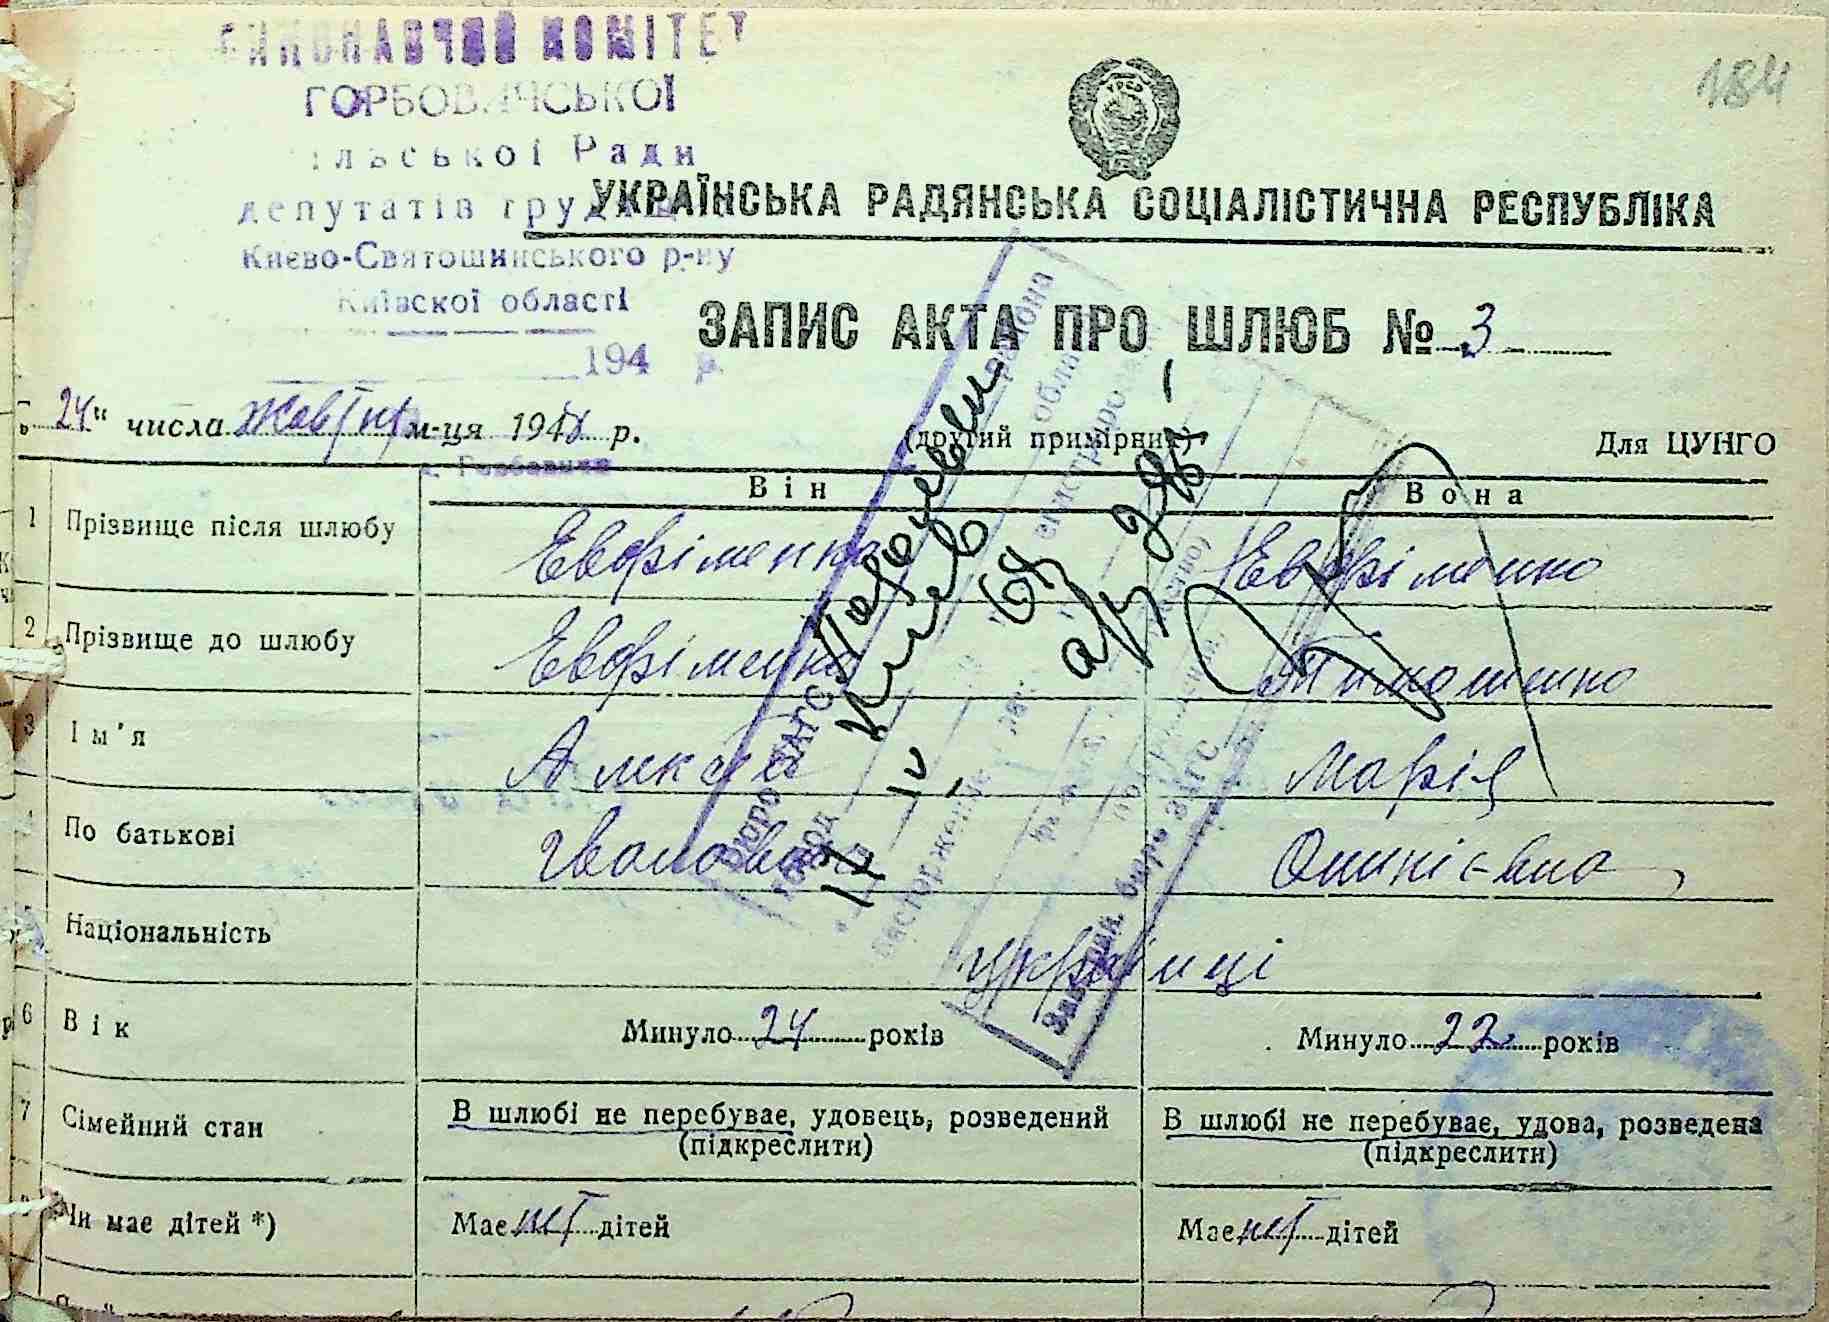 ВИКОНАВЧИЙ КОМІТЕТ
ГОРБОВИЧСЬКОЇ
сільської Ради
депутатів трудящих
Києво-Святошинського р-ну
Київскої області
194 р.
184
УКРАЇНСЬКА РАДЯНСЬКА СОЦІАЛІСТИЧНА РЕСПУБЛІКА
ЗАПИС АКТА ПРО ШЛЮБ № 3
„24" числа м-ця 194 р.
(другий примірник)
Для ЦУНГО
с. Горбовичі
Він Вона
1 Прізвище після шлюбу Евфіменко Евфіменко
2 Прізвище до шлюбу Евфіменко Тимошенко
3 Ім'я Алексей Марія
4 По батькові Іванович
5 Національність українці
6 Вік Минуло 24 років Минуло 22 років
7 Сімейний стан В шлюбі не перебуває, удовець, розведений В шлюбі не перебуває, удова, розведена
(підкреслити) (підкреслити)
Чи має дітей *) Має нет дітей Має нет дітей
Бюро ЗАГС района
город Киев обл.
17 IV
расторжение
Зав. бюро ЗАГС